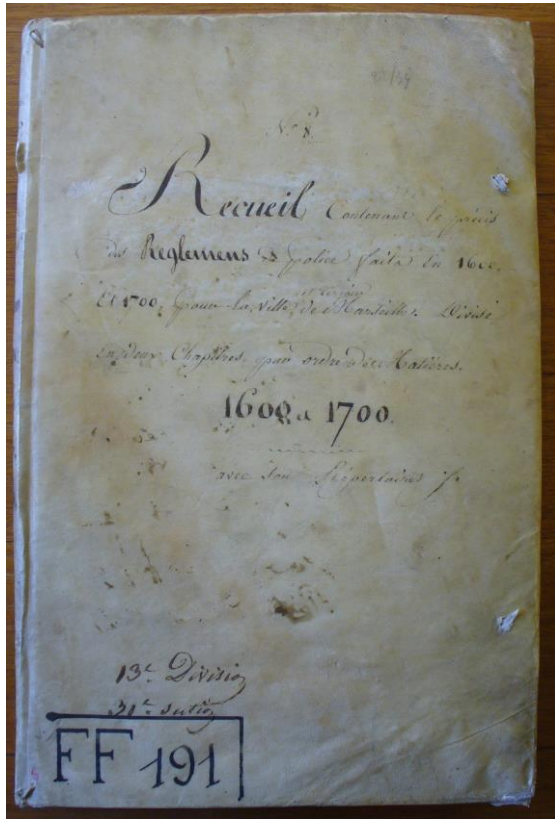 N.º 8.
Recueil Contenant le précis
des Reglemens de police faits En 1600.
Et 1700, pour la Ville de Marseille. Divisé
En deux Chapitres, par ordre de Matières.
1600 a 1700.
avec son Répertoire
13e Division
31e Section
FF 191